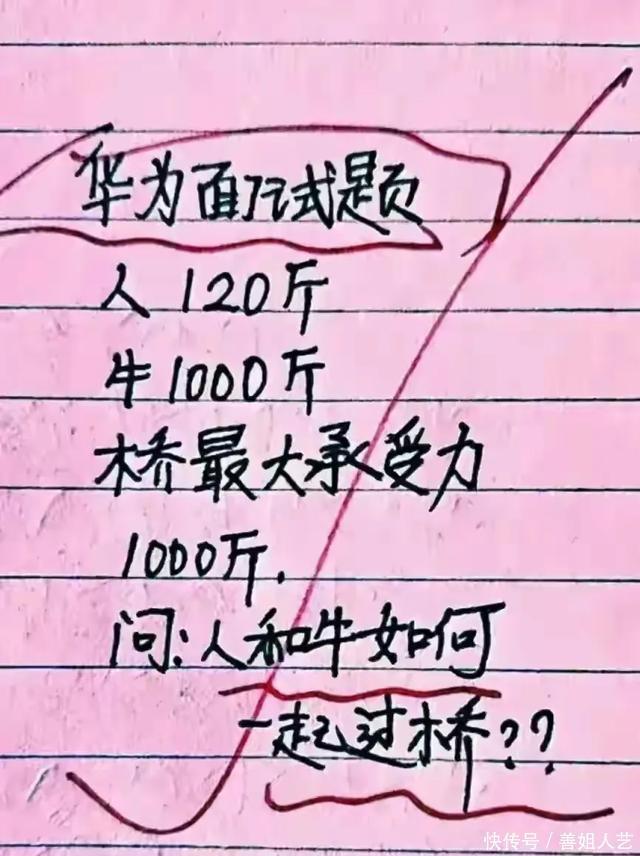 华为面试题
人120斤
牛1000斤
桥最大承受力
1000斤.
问:人和牛如何
一起过桥??
快传号/善姐人艺